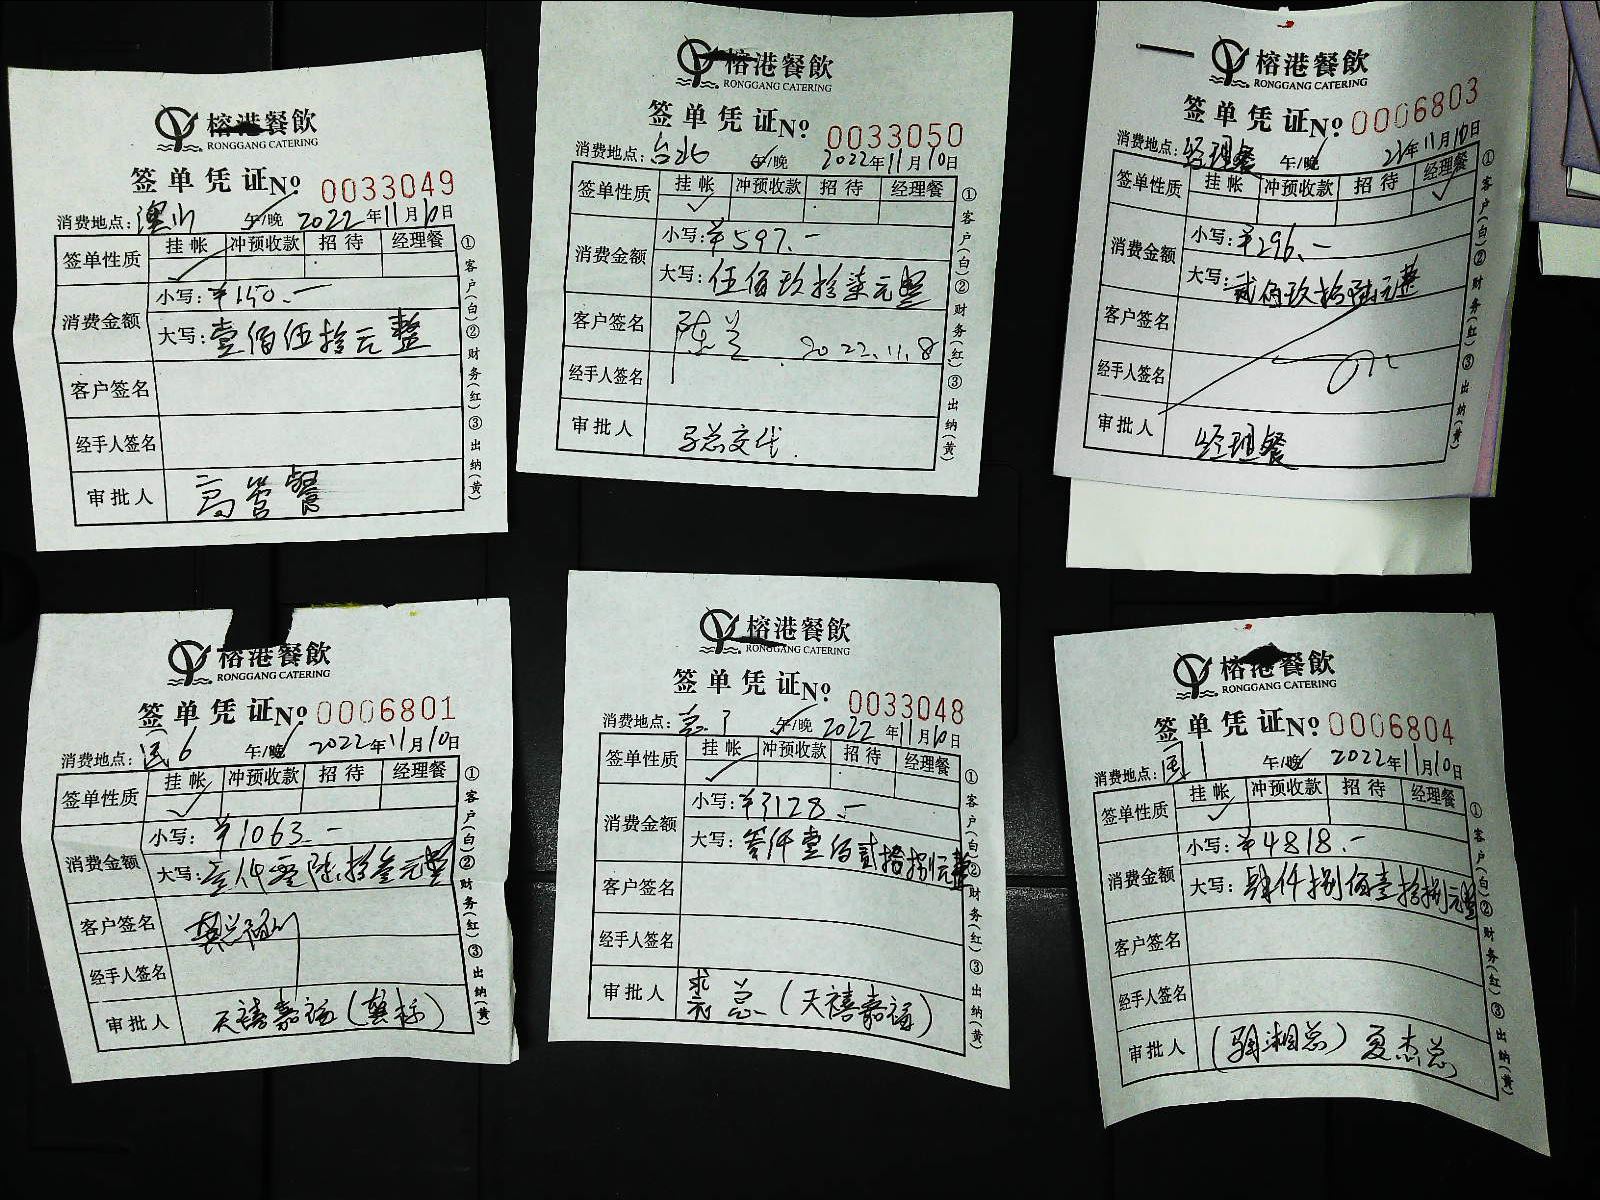 榕港餐飲
RONGGANG CATERING
签单凭证 Nº 0033049
消费地点: 午/晚 2022年11月10日
签单性质 挂帐 冲预收款 招待 经理餐
消费金额 小写:¥150.-
大写:壹佰伍拾元整
客户签名
经手人签名
审批人 高管餐
①客户(白)②财务(红)③出纳(黄)
榕港餐飲
RONGGANG CATERING
签单凭证 Nº 0033050
消费地点:台北 午/晚 2022年11月10日
签单性质 挂帐 冲预收款 招待 经理餐
消费金额 小写:¥597.-
大写:伍佰玖拾柒元整
客户签名 陈兰 2022.11.8
经手人签名
审批人 总交代.
①客户(白)②财务(红)③出纳(黄)
榕港餐飲
RONGGANG CATERING
签单凭证 Nº 0006803
消费地点:经理餐 午/晚 22年11月10日
签单性质 挂帐 冲预收款 招待 经理餐
消费金额 小写:¥296.-
大写:贰佰玖拾陆元整
客户签名
经手人签名
审批人 经理餐
①客户(白)②财务(红)③出纳(黄)
榕港餐飲
RONGGANG CATERING
签单凭证 Nº 0006801
消费地点:民6 午/晚 2022年11月10日
签单性质 挂帐 冲预收款 招待 经理餐
消费金额 小写:¥1063.-
大写:壹仟零陆拾叁元整
客户签名
经手人签名
审批人 天禧嘉福
①客户(白)②财务(红)③出纳(黄)
榕港餐飲
RONGGANG CATERING
签单凭证 Nº 0033048
消费地点: 午/晚 2022年11月10日
签单性质 挂帐 冲预收款 招待 经理餐
消费金额 小写:¥3128.-
大写:叁仟壹佰贰拾捌元整
客户签名
经手人签名
审批人 总(天禧嘉福)
①客户(白)②财务(红)③出纳(黄)
榕港餐飲
RONGGANG CATERING
签单凭证 Nº 0006804
消费地点: 午/晚 2022年11月10日
签单性质 挂帐 冲预收款 招待 经理餐
消费金额 小写:¥4818.-
大写:肆仟捌佰壹拾捌元整
客户签名
经手人签名
审批人 (湘总)夏杰总
①客户(白)②财务(红)③出纳(黄)